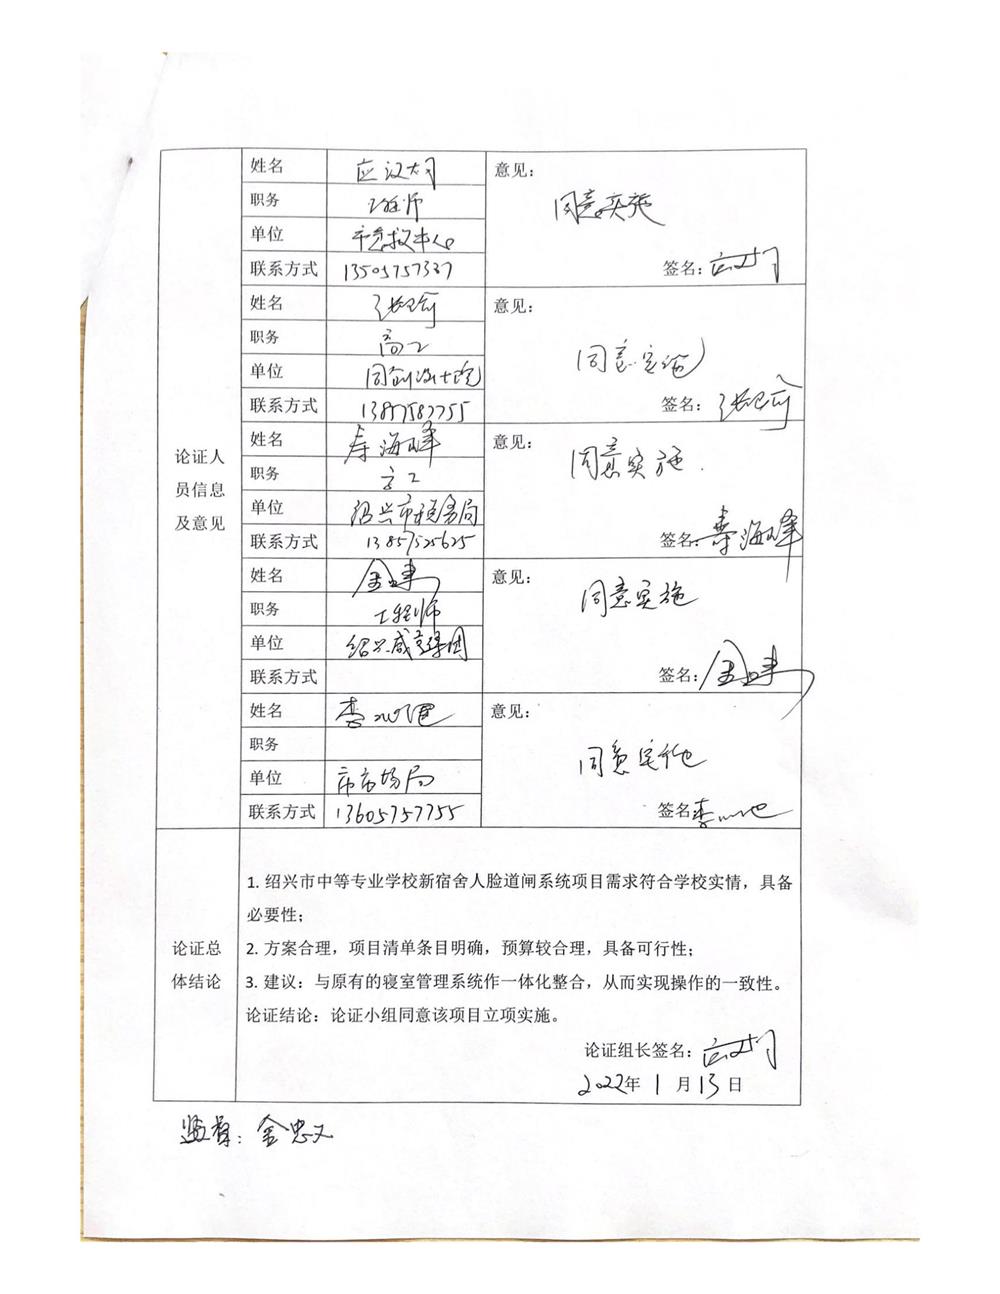 姓名
意见：
职务 工程师
同意实施
单位 市急救中心
联系方式 13505757337
签名：
姓名
意见：
职务 高工
同意实施
单位
联系方式 13857587755
签名：
姓名 寿海峰
意见：
职务 高工
同意实施
单位 绍兴市税务局
联系方式 13857525625
签名：寿海峰
论证人
员信息
及意见
姓名
意见：
职务 工程师
同意实施
单位 绍兴咸亨集团
联系方式
签名：
姓名
意见：
职务
同意实施
单位 市市场局
联系方式 13605757755
签名
论证总
体结论
1. 绍兴市中等专业学校新宿舍人脸道闸系统项目需求符合学校实情，具备
必要性；
2. 方案合理，项目清单条目明确，预算较合理，具备可行性；
3. 建议：与原有的寝室管理系统作一体化整合，从而实现操作的一致性。
论证结论：论证小组同意该项目立项实施。
论证组长签名：
2022年 1 月 13 日
监督：金忠义